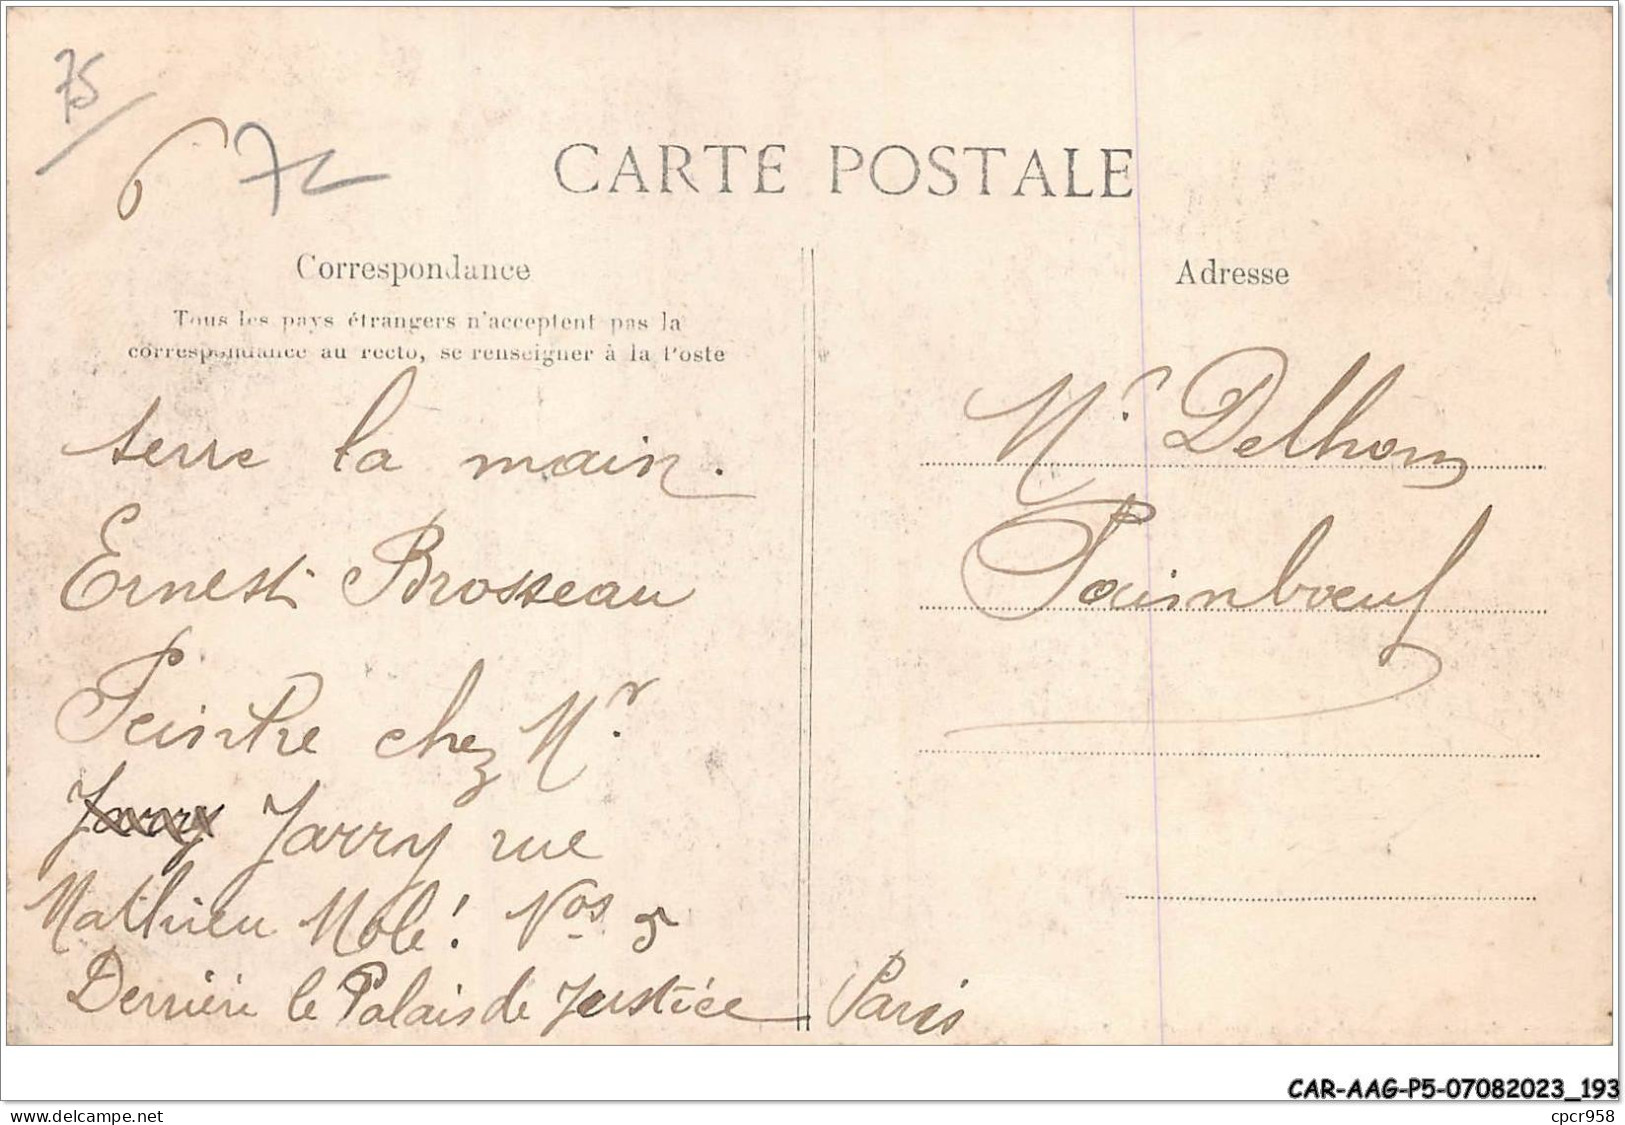 75
6 72
CARTE POSTALE
Correspondance
Tous les pays étrangers n'acceptent pas la
correspondance au recto, se renseigner à la Poste
serre la main.
Ernest Brosseau
Peintre chez Mr
Jarry Jarry rue
Mathieu Molé! Nos 5
Derrière le Palais de Justice Paris
Adresse
Mr Delhom
Paimbœuf
CAR-AAG-P5-07082023_193
delcampe.net
cpcr958